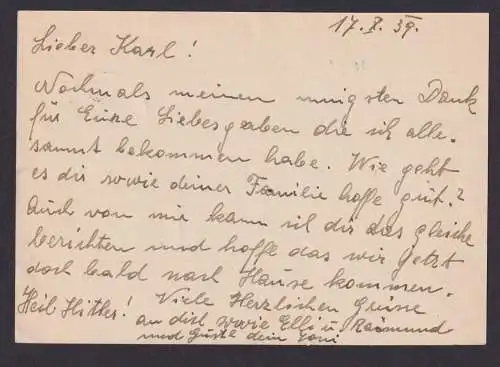 17. X. 39.
Lieber Karl!
Nochmals meinen innigsten Dank
für Eure Liebesgaben die ich alle-
samt bekommen habe. Wie geht
es dir sowie deiner Familie hoffe gut.?
Auch von mir kann ich dir das gleiche
berichten und hoffe das wir Jetzt
doch bald nach Hause kommen.
Heil Hitler! Viele Herzlichen Grüsse
an dich sowie Elli u. Raimund
und Guste dein Toni